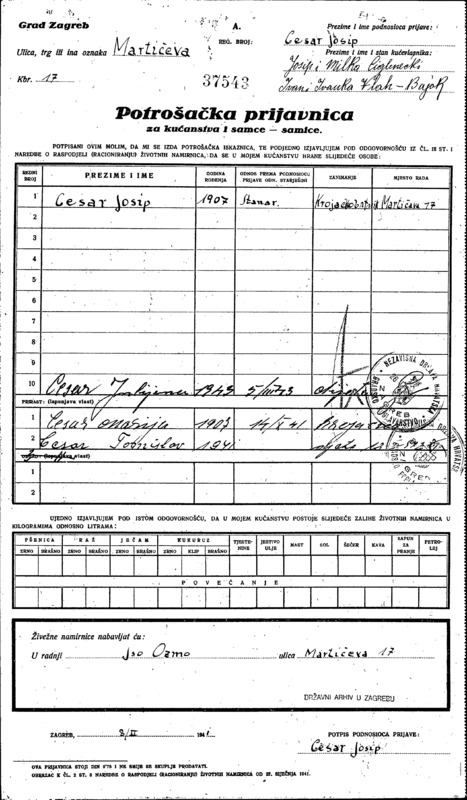 Grad Zagreb
Ulica, trg ili ina oznaka Martićeva
Kbr. 17
A.
REG. BROJ:
37543
Prezime i ime podnosioca prijave:
Cesar Josip
Prezime i ime i stan kućevlasnika:
Josip i Milka
Ivan i Ivanka Vlah - Bajok
Potrošačka prijavnica
za kućanstva i samce – samice.
POTPISANI OVIM MOLIM, DA MI SE IZDA POTROŠAČKA ISKAZNICA, TE PODJEDNO IZJAVLJUJEM POD ODGOVORNOŠĆU IZ ČL. 18 ST. I
NAREDBE O RASPODJELI (RACIONIRANJU) ŽIVOTNIH NAMIRNICA, DA SE U MOJEM KUĆANSTVU HRANE SLIJEDEĆE OSOBE:
REDNI BROJ PREZIME I IME GODINA ROĐENJA ODNOS PREMA PODNOSIOCU PRIJAVE ODN. STARJEŠINI ZANIMANJE MJESTO RADA
1 Cesar Josip 1907 Stanar. Martićeva 17
2
3
4
5
6
7
8
9
10 Cesar 1943
PRIRAST: (Ispunjava vlast)
1 Cesar Marija 1907 14/X 41
2 Cesar Tomislav
NEZAVISNA DRŽAVA HRVATSKA
1
2
UJEDNO IZJAVLJUJEM POD ISTOM ODGOVORNOŠĆU, DA U MOJEM KUĆANSTVU POSTOJE SLIJEDEĆE ZALIHE ŽIVOTNIH NAMIRNICA U
KILOGRAMIMA ODNOSNO LITRAMA:
PŠENICA RAŽ JEČAM KUKURUZ TJESTENINE JESTIVO ULJE MAST SOL ŠEĆER KAVA SAPUN ZA PRANJE PETROLEJ
ZRNO BRAŠNO ZRNO BRAŠNO ZRNO BRAŠNO ZRNO KLIP BRAŠNO
POVEĆANJE
Živežne namirnice nabavljat ću:
U radnji Jso Ozmo ulica Martićeva 17
DRŽAVNI ARHIV U ZAGREBU
ZAGREB, 8/II 1941
POTPIS PODNOSIOCA PRIJAVE:
Cesar Josip
OVA PRIJAVNICA STOJI DIN 0·75 I NE SMIJE SE SKUPLJE PRODAVATI.
OBRAZAC K ČL. 2 ST. 2 NAREDBE O RASPODJELI (RACIONIRANJU) ŽIVOTNIH NAMIRNICA OD 27. SIJEČNJA 1941.